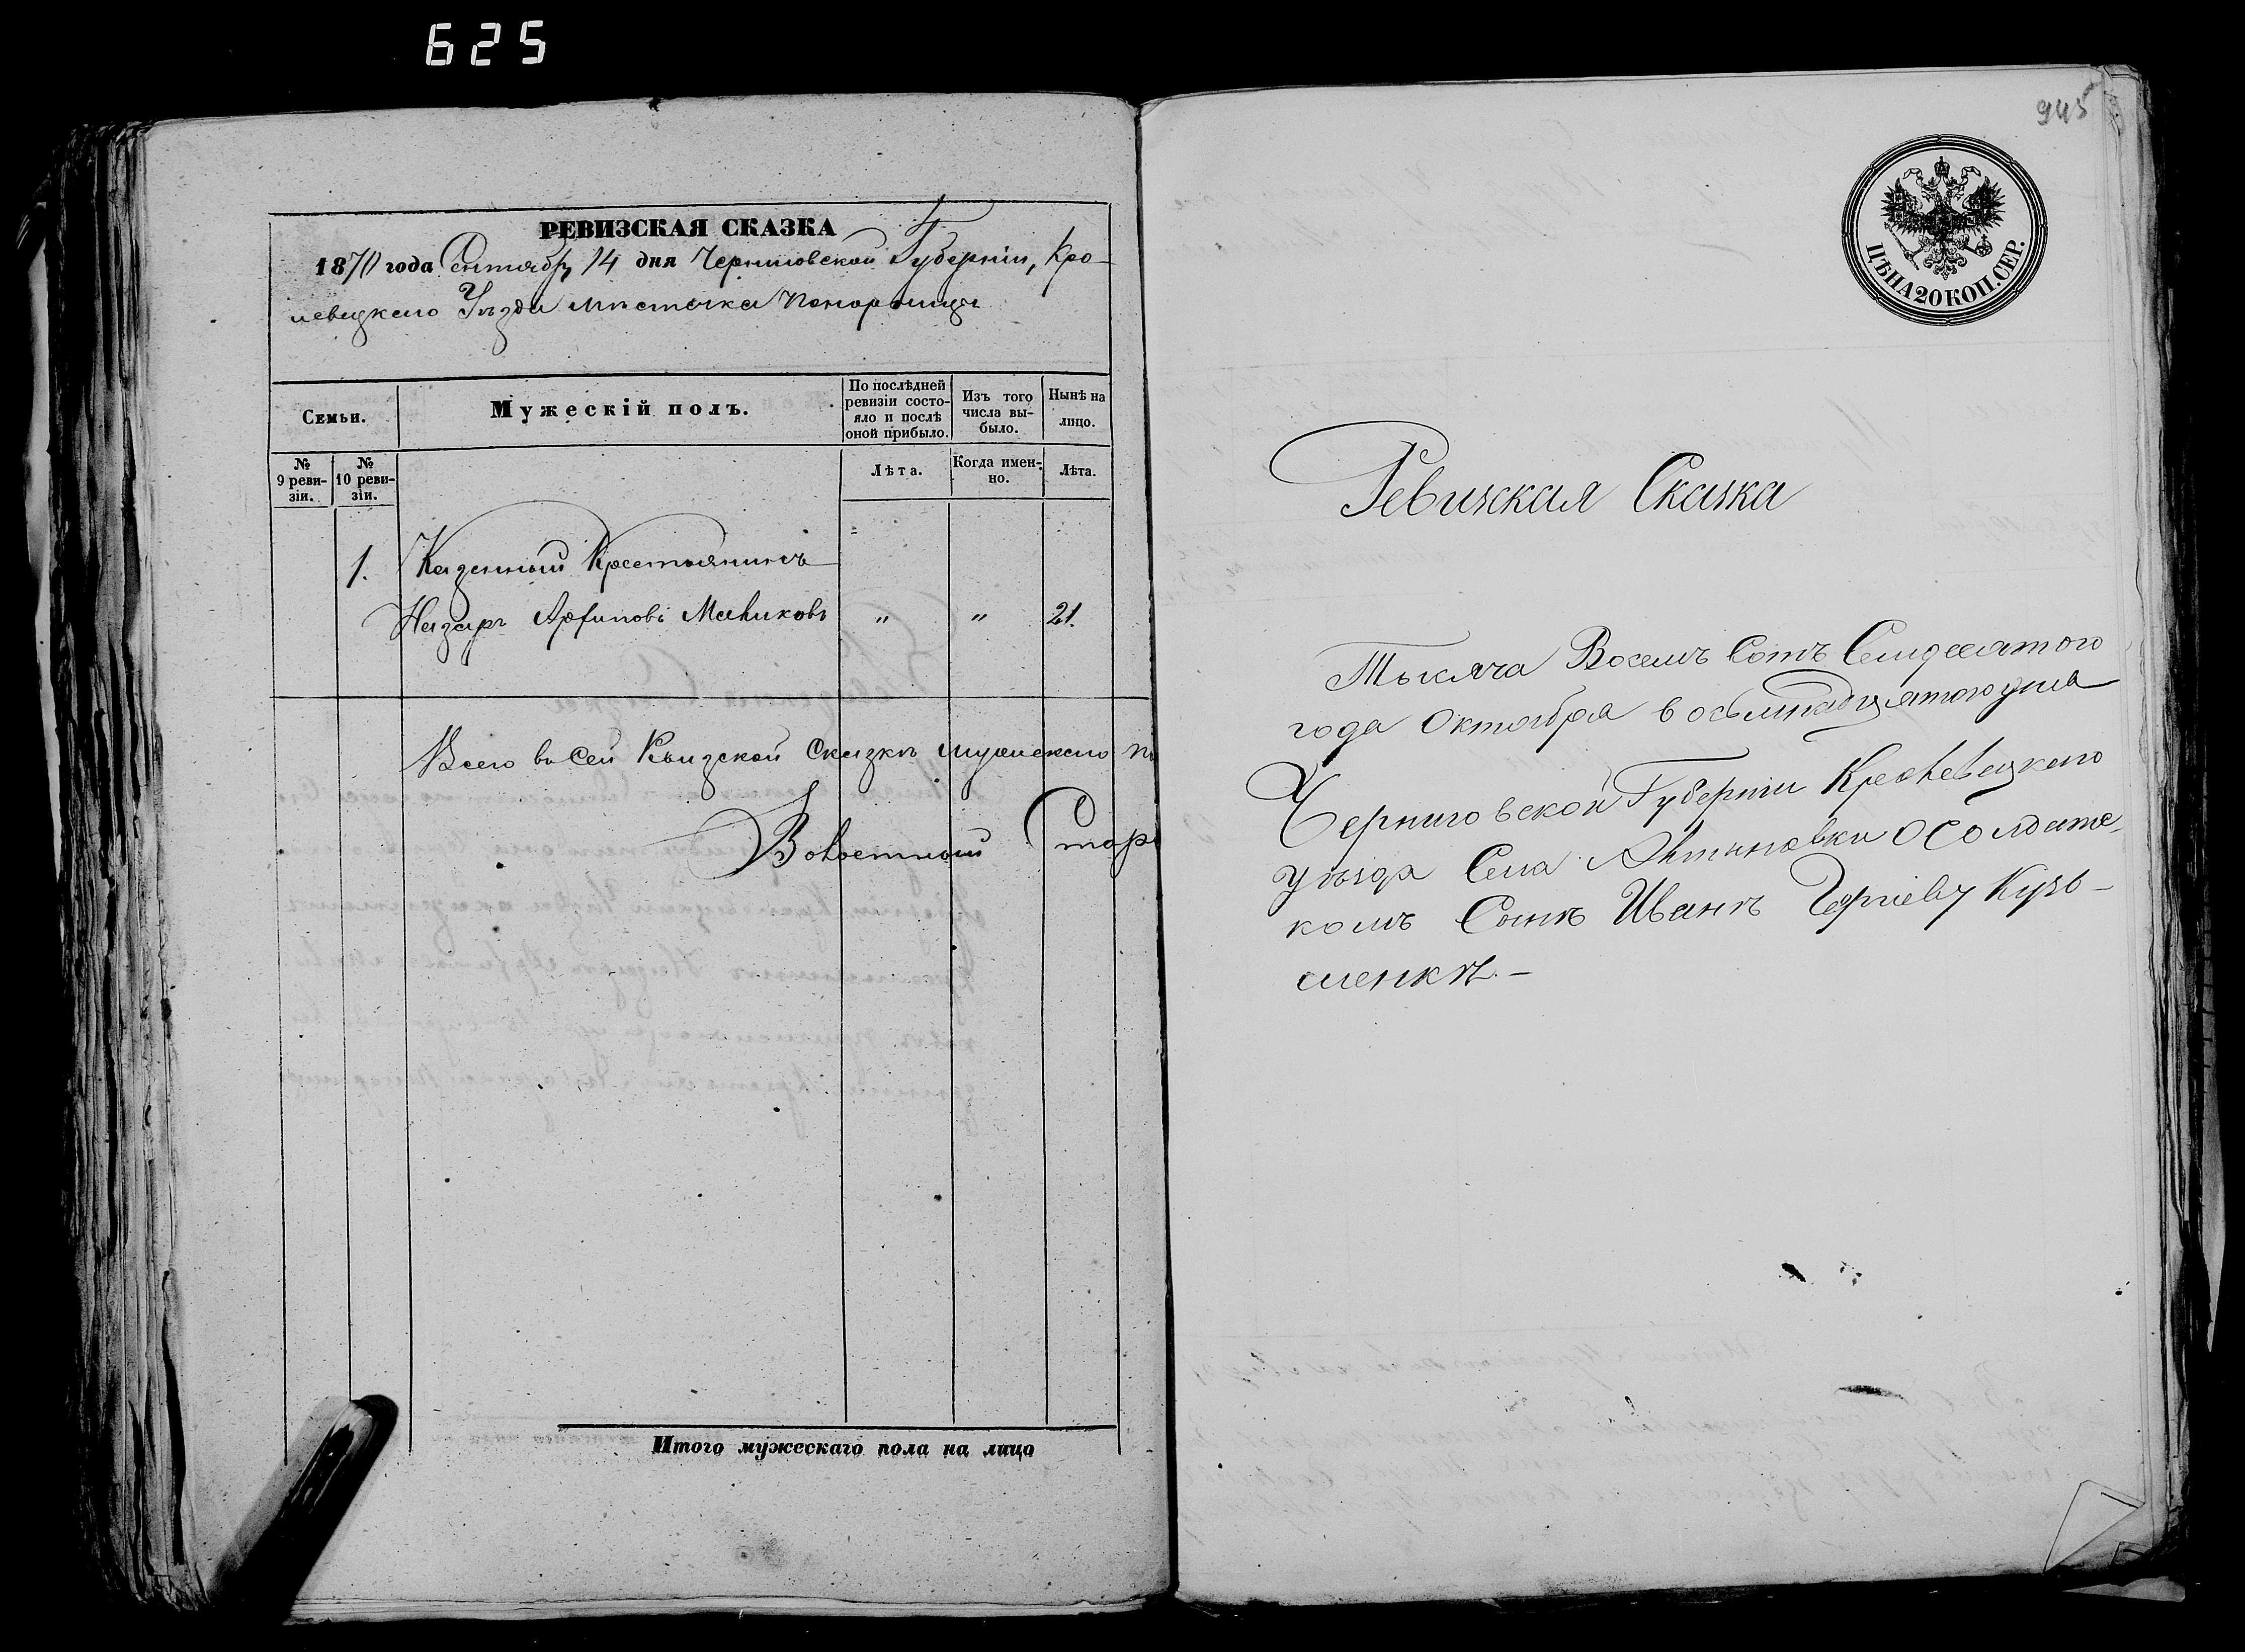 625
РЕВИЗСКАЯ СКАЗКА
1870 года Сентября 14 дня Черниговской Губерніи, Кро-
левецкаго Уѣзда мѣстечка Понорницы
Семьи.
Мужескій полъ.
По послѣдней ревизіи состо-
яло и послѣ оной прибыло.
Изъ того числа вы-
было.
Нынѣ на лицо.
№ 9 реви-
зіи.
№ 10 реви-
зіи.
Лѣта.
Когда имен-
но.
Лѣта.
1. Казенный Крестьянинъ
Назаръ Архиповъ Маликовъ " " 21.
Всего въ сей Ревизской Сказкѣ мужескаго по
Волостный Стар
Итого мужескаго пола на лицо
945
ЦѢНА 20 КОП. СЕР.
Ревизская Сказка
Тысяча Восемъ Сотъ Семидесятого
года Октября восьмнадцятого дня
Черниговской Губерніи Кролевецкого
уѣзда Села Лктыновки О Солдатс-
комъ Сынѣ Иванѣ Георгіеву Кузь-
менкѣ.-